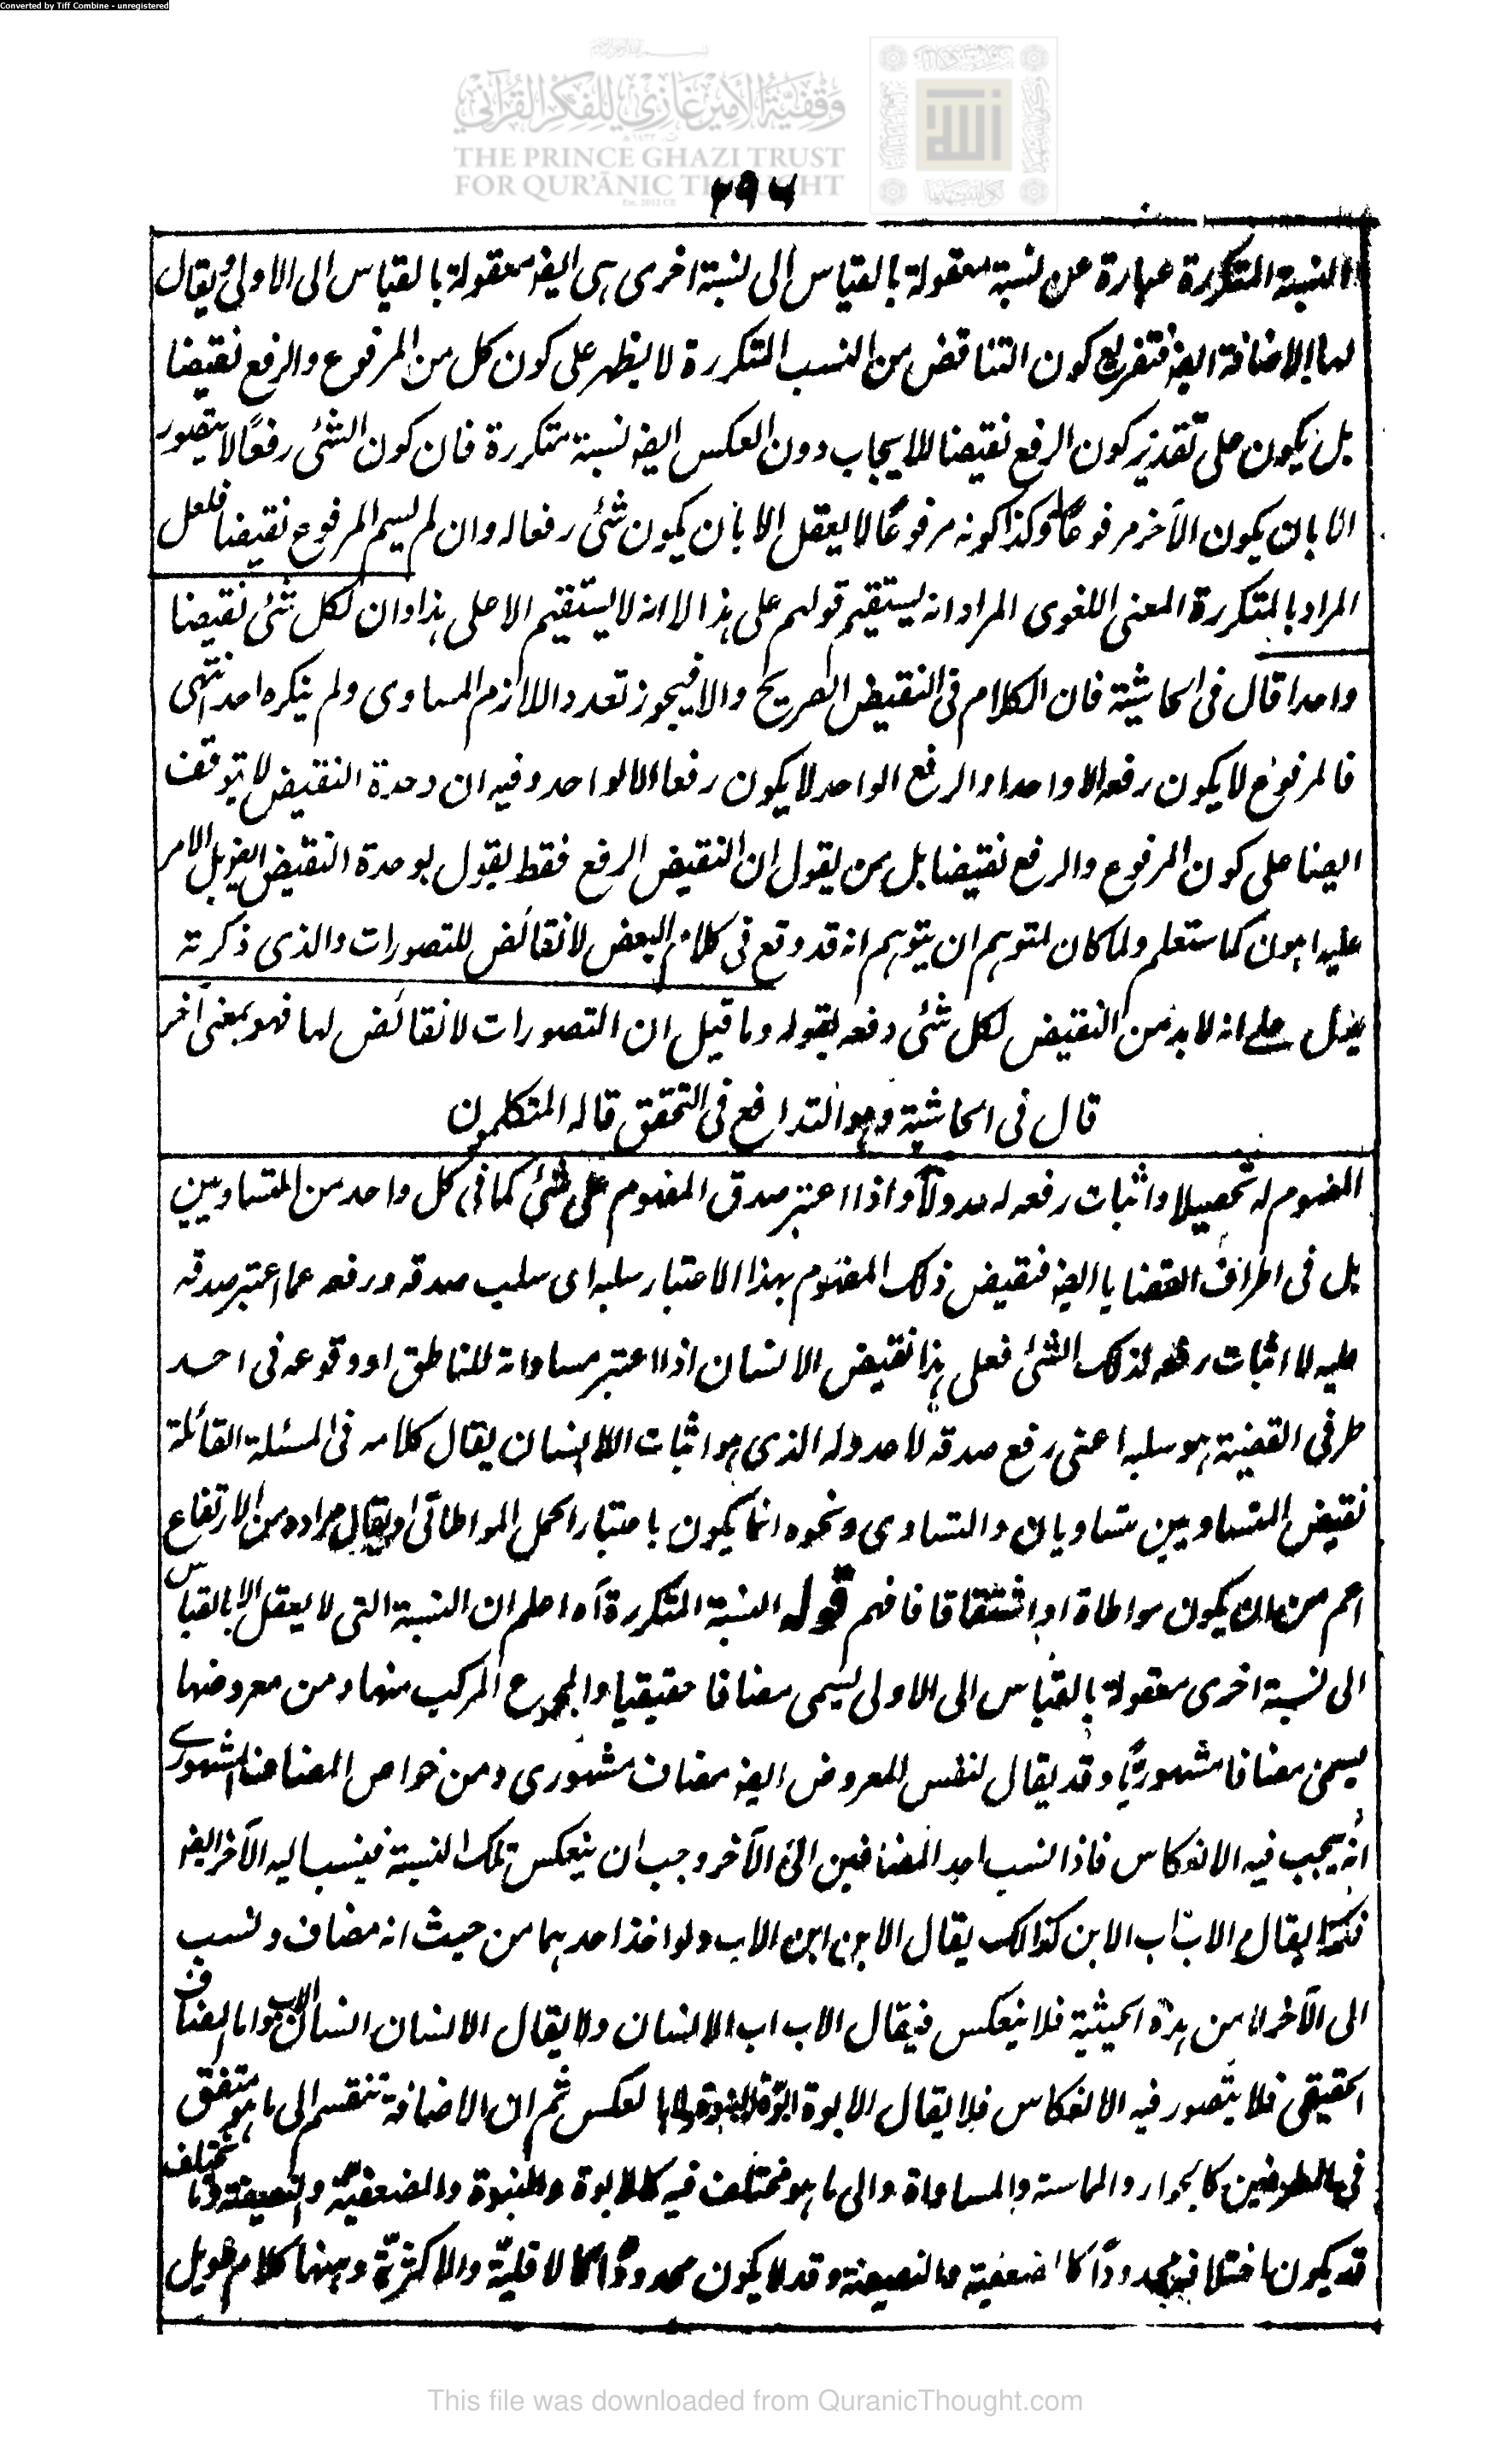 Converted by Tiff Combine - unregistered
وقفية الأمير غازي للفكر القرآني
THE PRINCE GHAZI TRUST
FOR QUR'ĀNIC THOUGHT
۲۹۶
النسبة المتكررة عبارة عن نسبة معقولة بالقياس الى نسبة اخرى هى ايض معقولة بالقياس الى الاولى ويقال
لها الاضافة ايض فتفريع كون التناقض من النسب المتكررة لا يظهر على كون كل من المرفوع والرفع نقيضا
بل يكون على تقدير كون الرفع نقيضا للايجاب دون العكس ايض نسبة متكررة فان كون الشئ رفعًا لا يتصور
الا بان يكون الآخر مرفوعًا وكذا كونه مرفوعًا لا يعقل الا بان يكون شئ رفعا له وان لم يسم المرفوع نقيضا فلعل
المراد بالمتكررة المعنى اللغوى المراد انه يستقيم قولهم على هذا لا انه لا يستقيم الا على هذا وان لكل شئ نقيضا
واحدا قال فى الحاشية فان الكلام فى النقيض الصريح والا فيجوز تعدد اللازم المساوى ولم ينكره احد انتهى
فالمرفوع لا يكون رفعه الا واحدا والرفع الواحد لا يكون رفعا الا لواحد وفيه ان وحدة النقيض لا يتوقف
ايضا على كون المرفوع والرفع نقيضا بل من يقول ان النقيض الرفع فقط يقول بوحدة النقيض ايض بل الامر
عليه اهون كما ستعلم ولما كان لمتوهم ان يتوهم انه قد وقع فى كلام البعض لا نقائض للتصورات والذى ذكرته
يدل على انه لا بد من النقيض لكل شئ دفعه بقوله وما قيل ان التصورات لا نقائض لها فهو بمعنى آخر
قال فى الحاشية وهو التدافع فى التحقق قاله المتكلمون
المفهوم له تحصيلا واثبات رفعه له عدولًا واذا اعتبر صدق المفهوم على شئ كما فى كل واحد من المتساويين
بل فى اطراف القضايا ايض فنقيض ذلك المفهوم بهذا الاعتبار سلبه اى سلب صدقه ورفعه عما اعتبر صدقه
عليه لا اثبات رفعه لذلك الشئ فعلى هذا نقيض الانسان اذا اعتبر مساواته للناطق او وقوعه فى احد
طرفى القضية هو سلبه اعنى رفع صدقه لا عدوله الذى هو اثبات اللاانسان يقال كلامه فى المسئلة القائلة
نقيض المتساويين متساويان والتساوى ونحوه انما يكون باعتبار الحمل المواطاتى او يقال مراده من الارتفاع
اعم من ان يكون مواطاة او اشتقاقا فافهم قوله النسبة المتكررة آه اعلم ان النسبة التى لا يعقل الا بالقياس
الى نسبة اخرى معقولة بالقياس الى الاولى يسمى مضافا حقيقيا والمجموع المركب منها ومن معروضها
يسمى مضافا مشهوريًا وقد يقال لنفس المعروض ايض مضاف مشهورى ومن خواص المضاف المشهورى
انه يجب فيه الانعكاس فاذا نسب احد المضافين الى الآخر وجب ان ينعكس تلك النسبة فينسب اليه الآخر ايض
فكما يقال الاب اب الابن كذلك يقال الابن ابن الاب ولو اخذ احدهما من حيث انه مضاف ونسب
الى الآخر لا من هذه الحيثية فلا ينعكس فيقال الاب اب الانسان ولا يقال الانسان انسان الاب واما المضاف
الحقيقى فلا يتصور فيه الانعكاس فلا يقال الابوة ابوة البنوة ولا بالعكس ثم ان الاضافة تنقسم الى ما هو متفق
فى الطرفين كالجوار والمماسة والمساواة والى ما هو مختلف فيه كالابوة والبنوة والضعفية والنصفية وما يختلف
قد يكون اختلافه محدودًا كالضعفية والنصفية وقد لا يكون محدودًا كالاقلية والاكثرية وههنا كلام طويل
This file was downloaded from QuranicThought.com